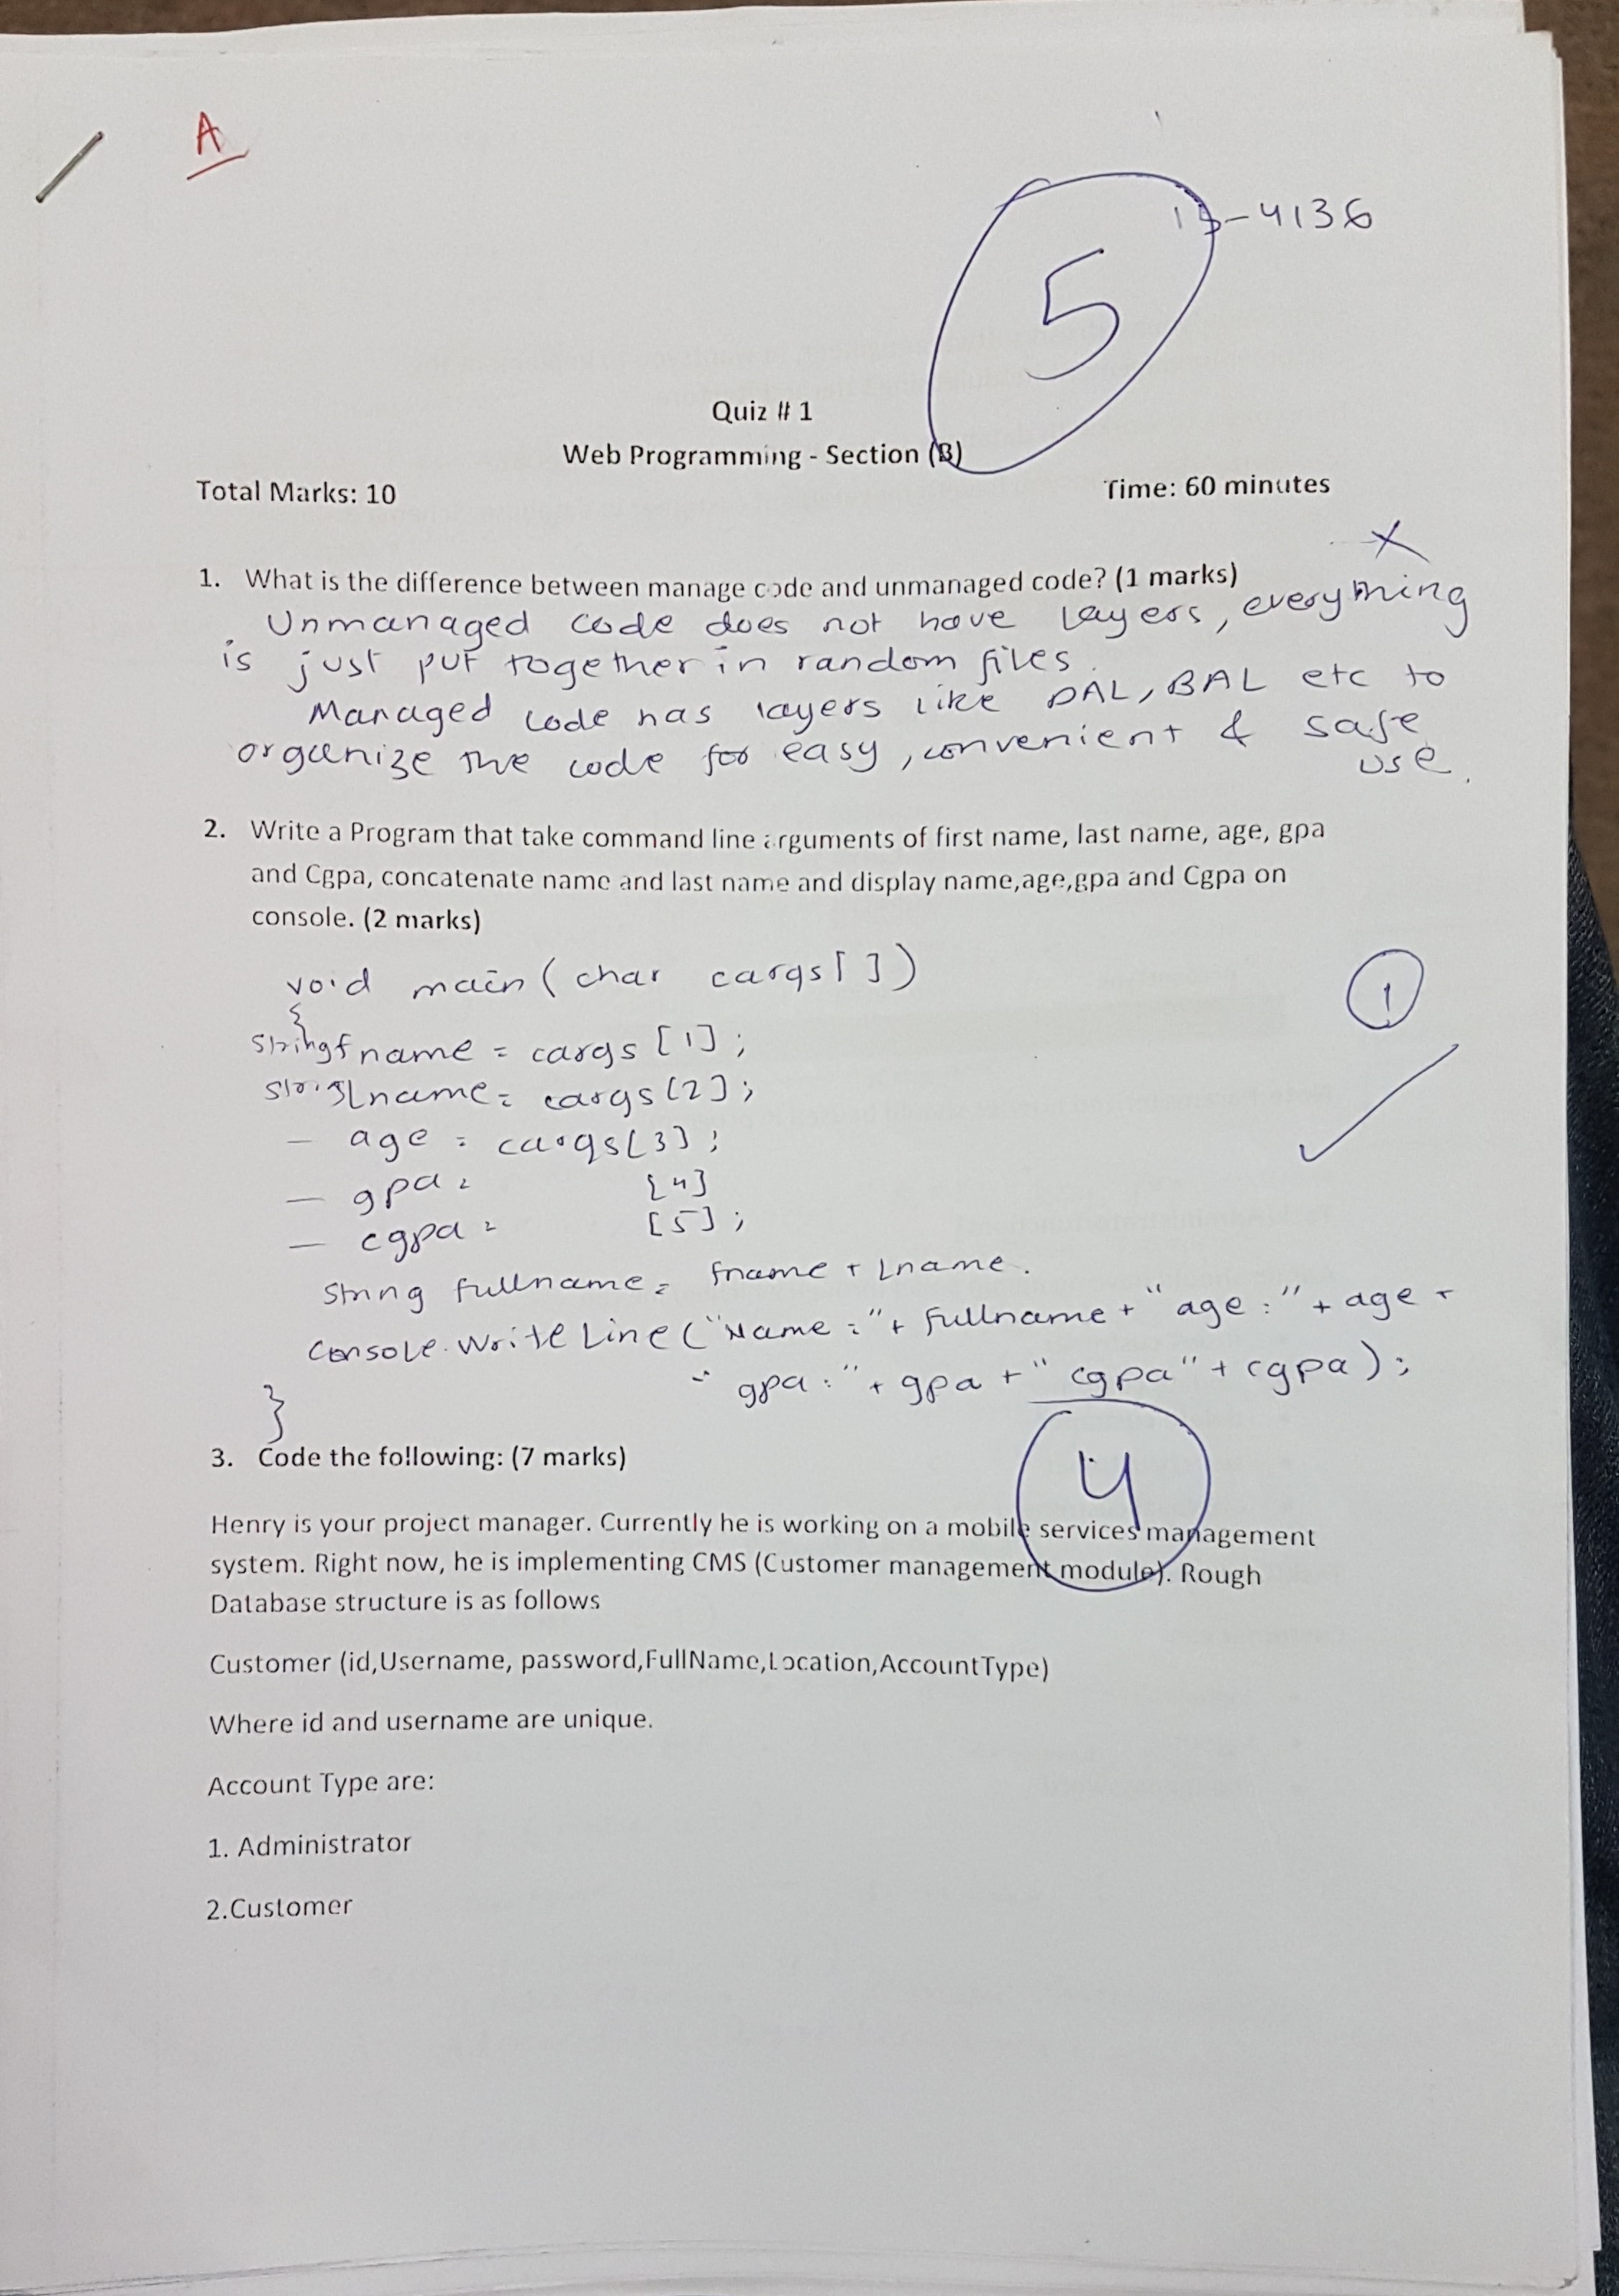 A
15-4136
5
Quiz # 1
Web Programming - Section (B)
Total Marks: 10 Time: 60 minutes
X
1. What is the difference between manage code and unmanaged code? (1 marks)
Unmanaged code does not have layers, everything
is just put together in random files.
Managed code has layers like DAL, BAL etc to
organize the code for easy, convenient & safe
use.
2. Write a Program that take command line arguments of first name, last name, age, gpa
and Cgpa, concatenate name and last name and display name,age,gpa and Cgpa on
console. (2 marks)
void main (char cargs[])
1
{
string fname = cargs [1];
string Lname = cargs [2];
- age = cargs[3];
- gpa = [4]
- cgpa = [5];
string fullname = fname + Lname.
Console.WriteLine ("Name :" + fullname + "age :" + age +
"gpa :" + gpa + "cgpa" + cgpa);
}
3. Code the following: (7 marks)
4
Henry is your project manager. Currently he is working on a mobile services management
system. Right now, he is implementing CMS (Customer management module). Rough
Database structure is as follows
Customer (id,Username, password,FullName,Location,AccountType)
Where id and username are unique.
Account Type are:
1. Administrator
2.Customer